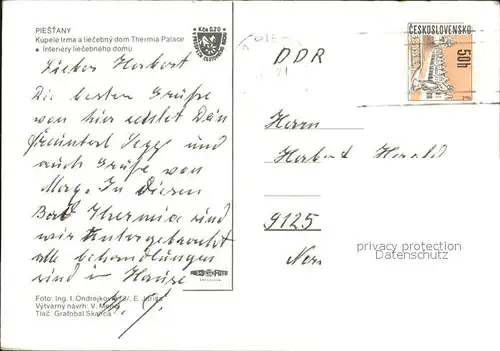 PIEŠŤANY
Kúpele Irma a liečebný dom Thermia Palace
• Interiéry liečebného domu
Kčs 0,20
ČESKOSLOVENSKO
50h
DDR
Lieber Herbert
Die besten Grüße
von hier sendet Dein
Freund Sepp und
auch Grüße von
In Diesen
Bad Thermia sind
wir Untergebracht
alle behandlungen
sind im Hause
Herrn
Herbert Herold
9125
privacy protection
Datenschutz
Foto: Ing. I. Ondrejkovič, E.
Výtvarný návrh: V.
Tlač: Grafobal Skalica